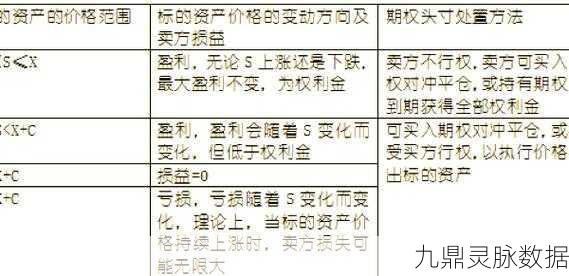 的资产的价格范围
标的资产价格的变动方向及
卖方损益
期权头寸处置方法
S≤X
盈利,无论 S 上涨还是下跌,
最大盈利不变,为权利金
卖方不行权,卖方可买入
权对冲平仓,或持有期权
到期获得全部权利金
S<X+C
盈利,盈利会随着 S 变化而
变化,但低于权利金
可买入期权对冲平仓,或
受买方行权,以执行价格
出标的资产
X+C
损益=0
X+C
亏损,亏损随着 S 变化而变
化,理论上,当标的资产价
格持续上涨时,卖方损失可
能无限大
九鼎灵脉数据